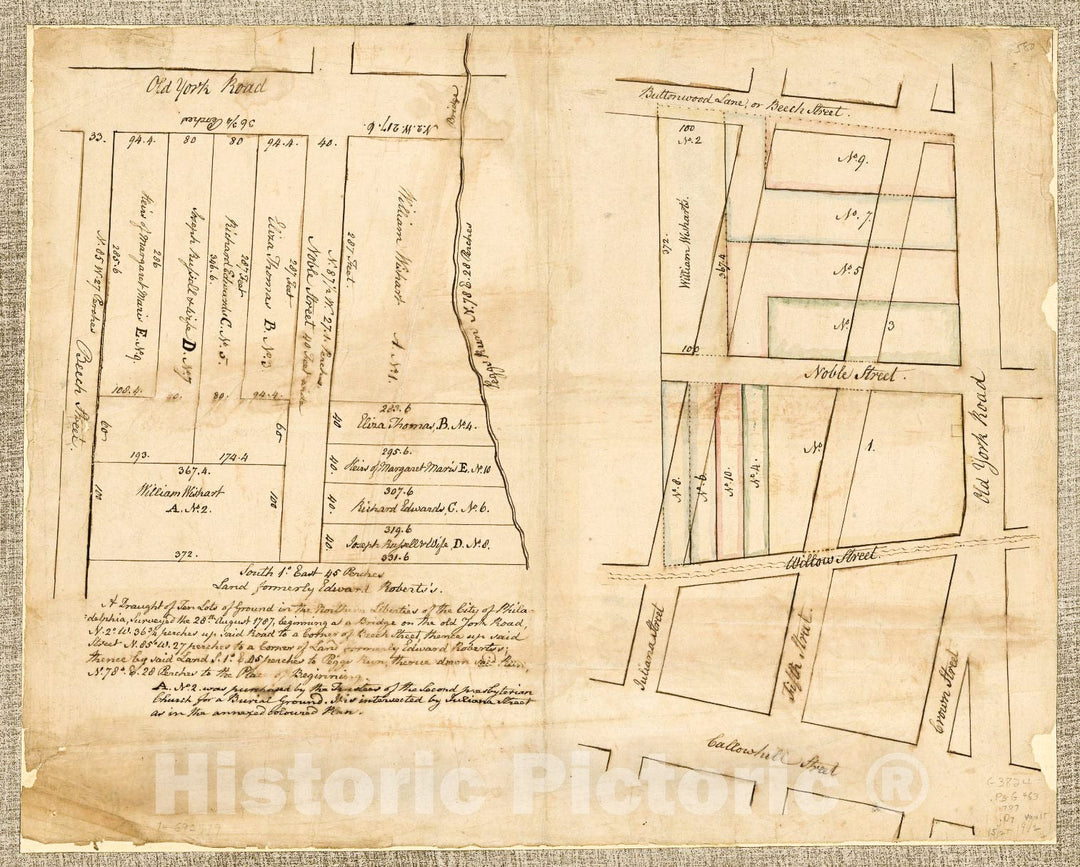 Old York Road
Bridge
36¾ Perches
N. 2. W. 217. 6.
33.
94.4.
80
80
94.4.
40.
N. 85 W. 27 Perches
Beech Street.
285.6
Heirs of Margaret Maris E. No. 9.
286
Joseph Russell & Wife D. No. 7
Richard Edwards C. No. 5.
287 Feet
Eliza Thomas B. No. 3
287 Feet
Noble Street 40 Feet wide
N. 87½ W. 27.
287 Feet.
William Wishart A No. 1.
Pegg's Run N. 78 E. 28 Perches
108.4.
80.
94.4.
60.
60
193.
174.4
367.4.
100
William Wishart
A. No. 2.
100
372.
283.6
40
Eliza Thomas, B. No. 4.
295.6
40.
Heirs of Margaret Maris E. No. 10
307.6
40.
Richard Edwards, C. No. 6.
319.6
40
Joseph Russell & Wife D. No. 8.
331.6
South 1º East 45 Perches
Land formerly Edward Roberts's.
A Draught of Ten Lots of Ground in the Northern Liberties of the City of Phila-
delphia, Surveyed the 28th August 1787, beginning at a Bridge on the old York Road,
N. 2º W. 36¾ perches up said Road to a Corner of Beech Street thence up said
Street N. 85º W. 27 perches to a Corner of Land formerly Edward Roberts's;
thence by said Land S. 1º E 45 perches to Peggs Run, thence down said Run
N. 78º. E. 28 Perches to the Place of Beginning.
A. No. 2. was purchased by the Trustees of the Second presbyterian
Church for a Burial Ground. It is intersected by Juliana Street
as in the annexed coloured Plan.
Buttonwood Lane, or Beech Street.
100
No. 2
William Wishart's.
372.
367.4
100
No. 9.
No. 7.
No. 5
No. 3
Noble Street.
No. 8.
No. 6.
No. 10.
No. 4.
No. 1.
Old York Road
Willow Street
Juliana Street
Fifth Street.
Crown Street
Callowhill Street
Historic Pictoric ®
G3824
.P5G463
1787
.D7
Vault